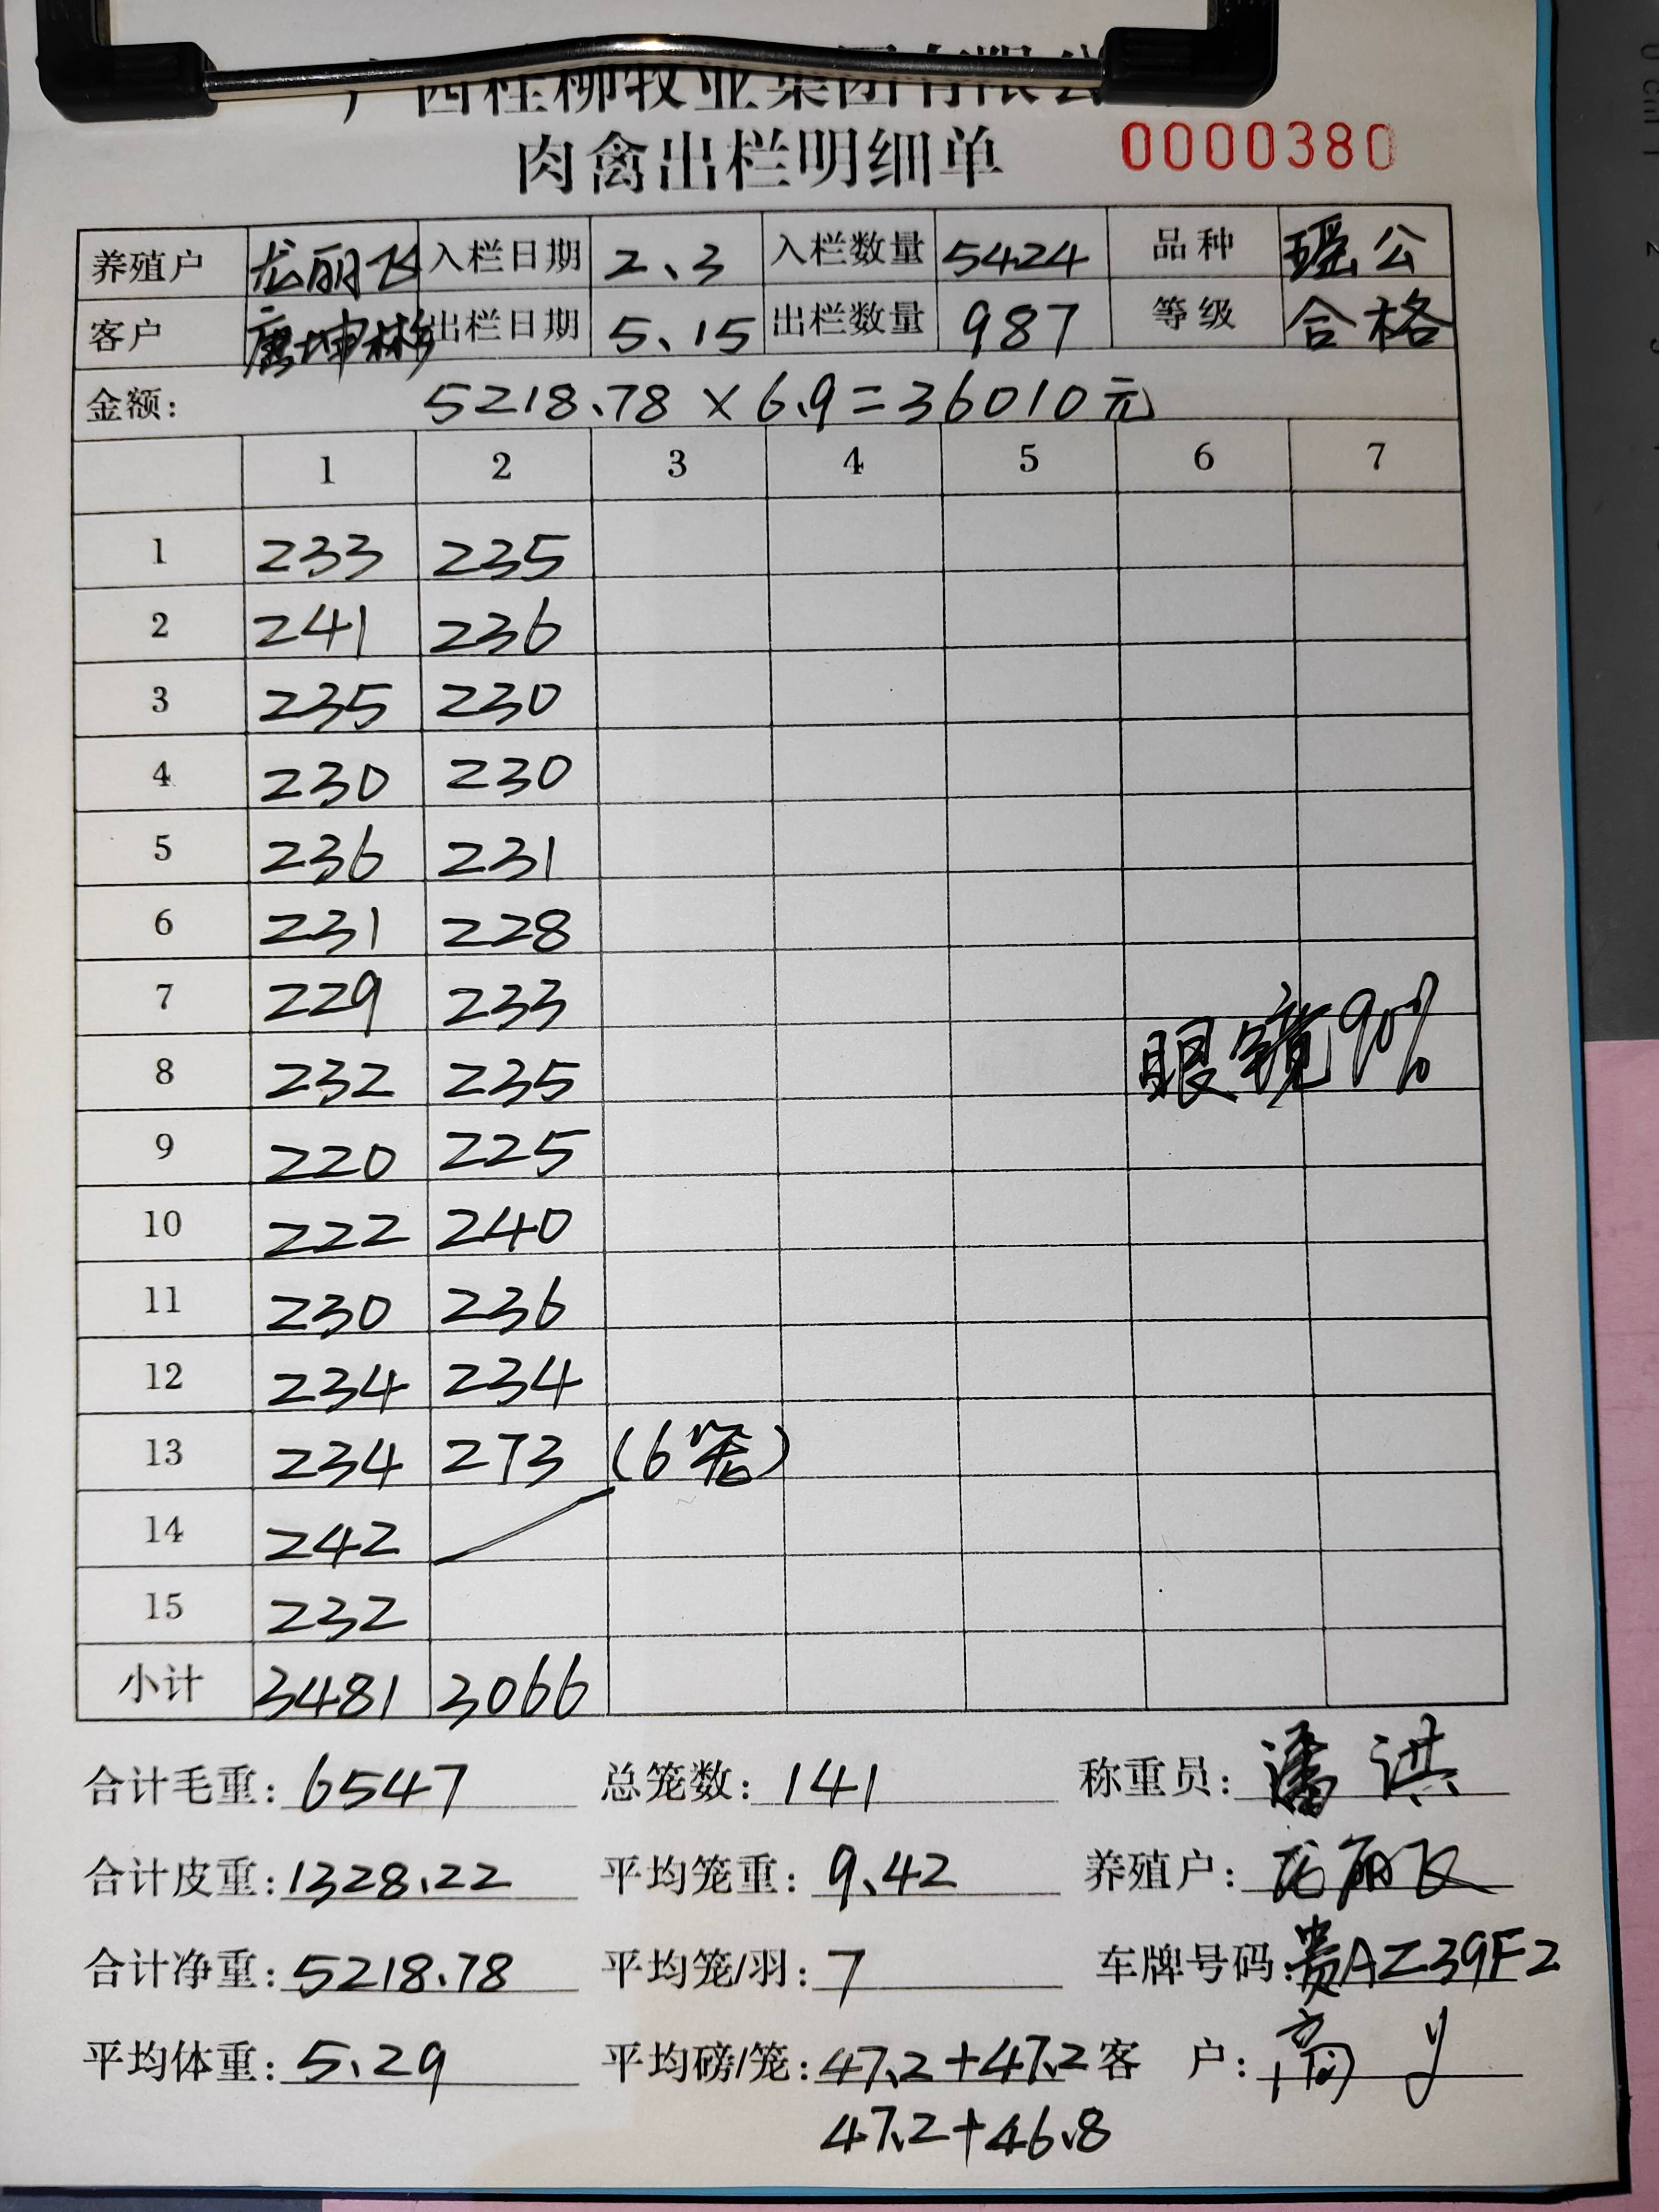 广西桂柳牧业集团有限公
肉禽出栏明细单 0000380
养殖户 龙丽飞 入栏日期 2.3 入栏数量 5424 品种 瑶公
客户 唐坤彬 出栏日期 5.15 出栏数量 987 等级 合格
金额: 5218.78×6.9=36010元
1 2 3 4 5 6 7
1 233 235
2 241 236
3 235 230
4 230 230
5 236 231
6 231 228
7 229 233
8 232 235 眼镜90%
9 220 225
10 222 240
11 230 236
12 234 234
13 234 273 (6笼)
14 242
15 232
小计 3481 3066
合计毛重: 6547 总笼数: 141 称重员: 潘洪
合计皮重: 1328.22 平均笼重: 9.42 养殖户: 龙丽飞
合计净重: 5218.78 平均笼/羽: 7 车牌号码: 贵AZ39F2
平均体重: 5.29 平均磅/笼: 47.2+47.2 客 户:
47.2+46.8